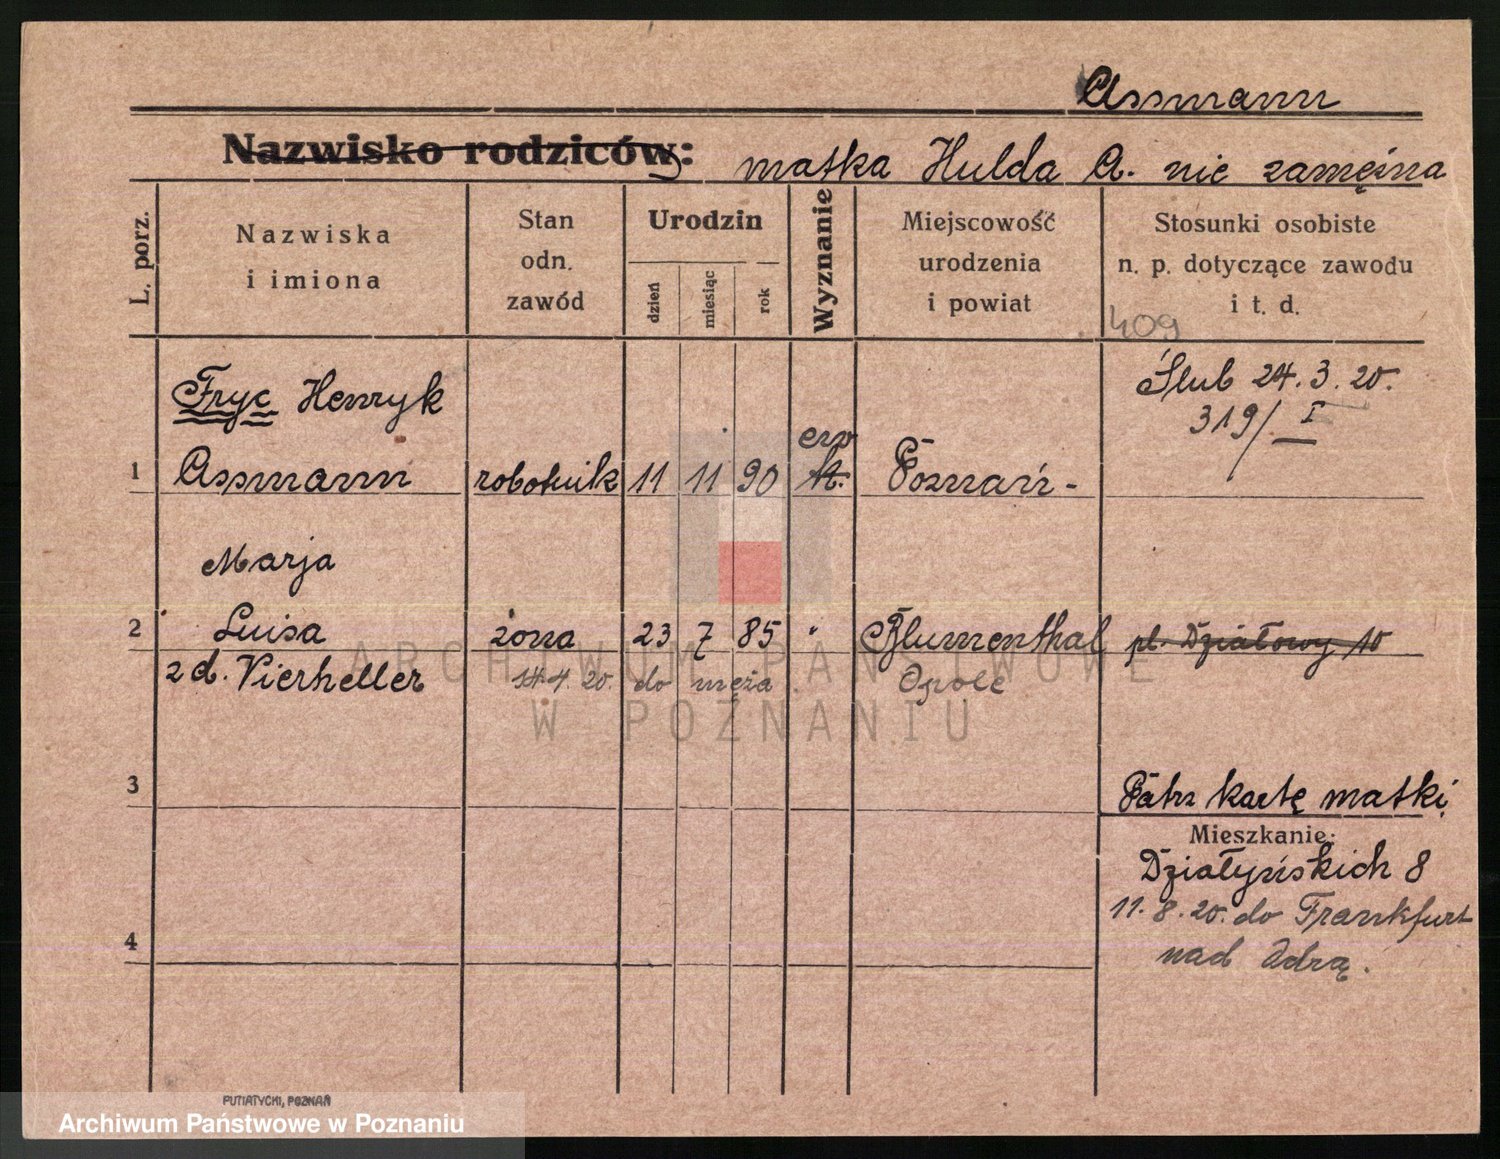 Assmann
Nazwisko rodziców: matka Hulda A. nie zamężna
L. porz.
Nazwiska
i imiona
Stan
odn.
zawód
Urodzin
dzień
miesiąc
rok
Wyznanie
Miejscowość
urodzenia
i powiat
Stosunki osobiste
n. p. dotyczące zawodu
i t. d.
409
Fryc Henryk
Ślub 24.3.20.
319/I
1 Assmann robotnik 11 11 90 ew Poznań -
Marja
2 Luisa żona 23 7 85 " Blumenthal pl. Działowy 10
z d. Vierheller 14.4.20. do męża Opole
ARCHIWUM PAŃSTWOWE
W POZNANIU
3
Patrz kartę matki
Mieszkanie:
Działyńskich 8
11.8.20. do Frankfurt
4
nad Odrą.
PUTIATYCKI, POZNAŃ
Archiwum Państwowe w Poznaniu